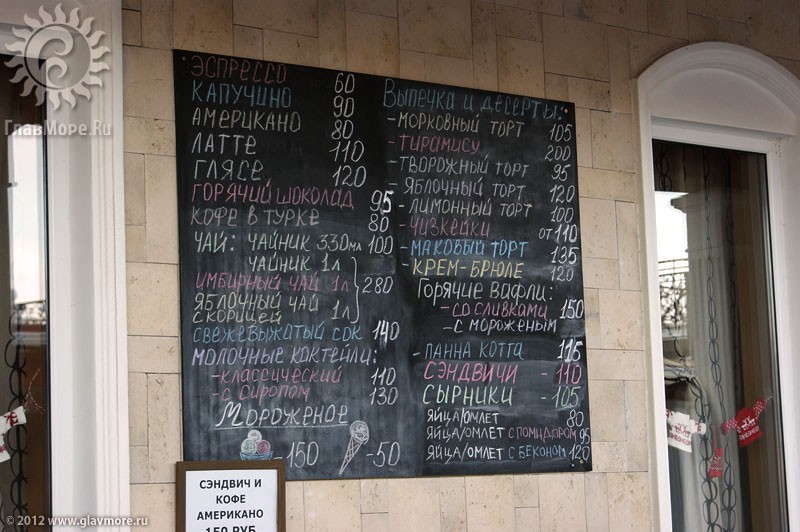 ГлавМоре.Ru
ЭСПРЕССО 60
КАПУЧИНО 90
АМЕРИКАНО 80
ЛАТТЕ 110
ГЛЯСЕ 120
ГОРЯЧИЙ ШОКОЛАД 95
КОФЕ В ТУРКЕ 80
ЧАЙ: ЧАЙНИК 330мл 100
ЧАЙНИК 1л
ИМБИРНЫЙ ЧАЙ 1л 280
ЯБЛОЧНЫЙ ЧАЙ 1л
С КОРИЦЕЙ
СВЕЖЕВЫЖАТЫЙ СОК 140
МОЛОЧНЫЕ КОКТЕЙЛИ:
-КЛАССИЧЕСКИЙ 110
-С СИРОПОМ 130
МОРОЖЕНОЕ
-150 -50
ВЫПЕЧКА И ДЕСЕРТЫ:
-МОРКОВНЫЙ ТОРТ 105
-ТИРАМИСУ 200
-ТВОРОЖНЫЙ ТОРТ 95
-ЯБЛОЧНЫЙ ТОРТ 120
-ЛИМОННЫЙ ТОРТ 100
-ЧИЗКЕЙКИ ОТ 110
-МАКОВЫЙ ТОРТ 135
-КРЕМ-БРЮЛЕ 120
ГОРЯЧИЕ ВАФЛИ:
-СО СЛИВКАМИ 150
-С МОРОЖЕНЫМ
-ПАННА КОТТА 115
СЭНДВИЧИ -110
СЫРНИКИ -105
ЯЙЦА/ОМЛЕТ 80
ЯЙЦА/ОМЛЕТ С ПОМИДОРОМ 95
ЯЙЦА/ОМЛЕТ С БЕКОНОМ 120
СЭНДВИЧ И
КОФЕ
АМЕРИКАНО
150 РУБ
© 2012 www.glavmore.ru